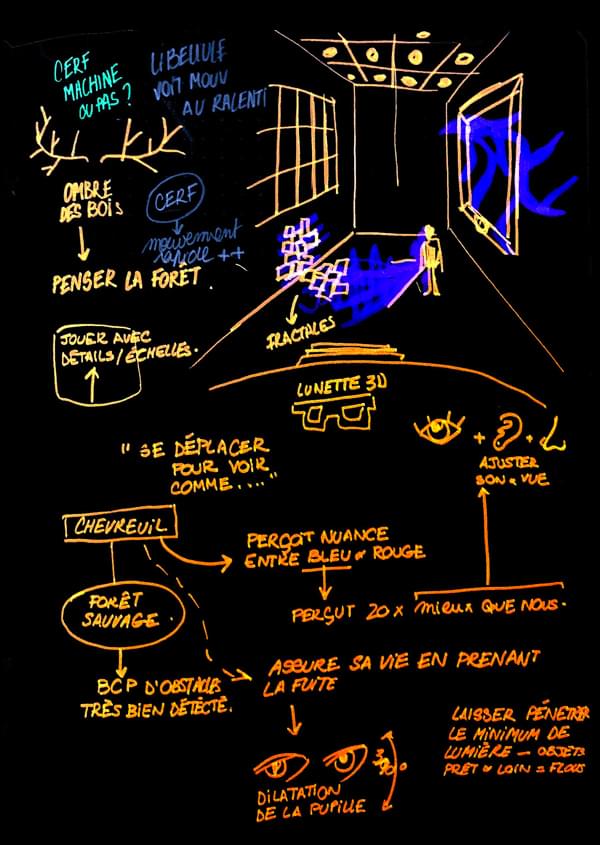 CERF
MACHINE
OU PAS ?
LIBELLULE
VOIT MOUV
AU RALENTI
OMBRE
DES BOIS
CERF
mouvement
rapide ++
PENSER LA FORÊT.
FRACTALES
JOUER AVEC
DÉTAILS/ÉCHELLES.
LUNETTE 3D
+ +
AJUSTER
SON & VUE
" SE DÉPLACER
POUR VOIR
COMME...."
CHEVREUIL
PERÇOIT NUANCE
ENTRE BLEU & ROUGE
FORÊT
SAUVAGE.
PERÇUT 20 x mieux QUE NOUS.
ASSURE SA VIE EN PRENANT
LA FUITE
BCP D'OBSTACLES
TRÈS BIEN DÉTECTÉ.
LAISSER PÉNÉTRER
LE MINIMUM DE
LUMIÈRE — OBJETS
PRÊT & LOIN = FLOUS
DILATATION
DE LA PUPILLE